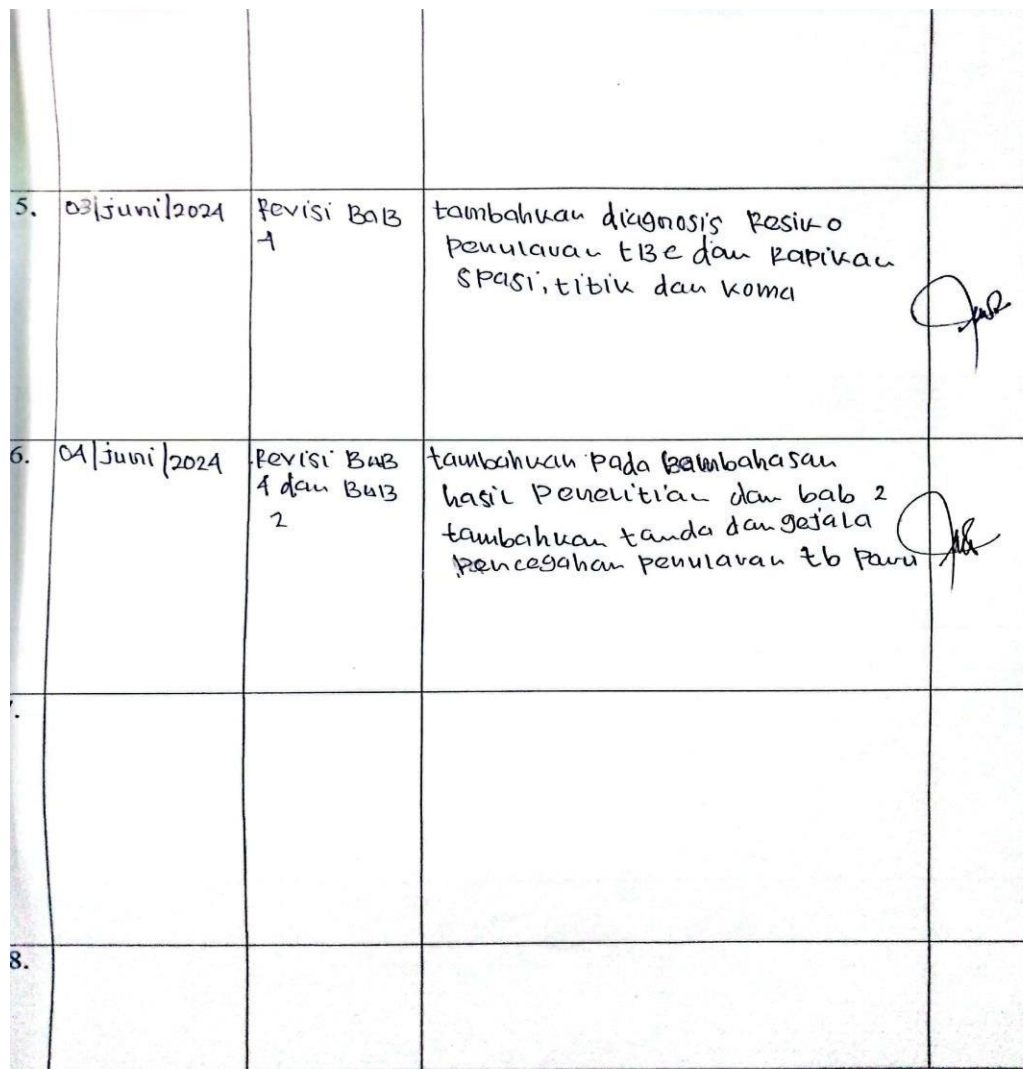 5. 03/juni/2024 Revisi BaB tambahkan diagnosis Resiko
4 penularan tBC dan Rapikan
spasi, titik dan koma
6. 04/juni/2024 Revisi BAB tambahkan pada pembahasan
4 dan BAB hasil penelitian dan bab 2
2 tambahkan tanda dan gejala
pencegahan penularan tb paru
8.